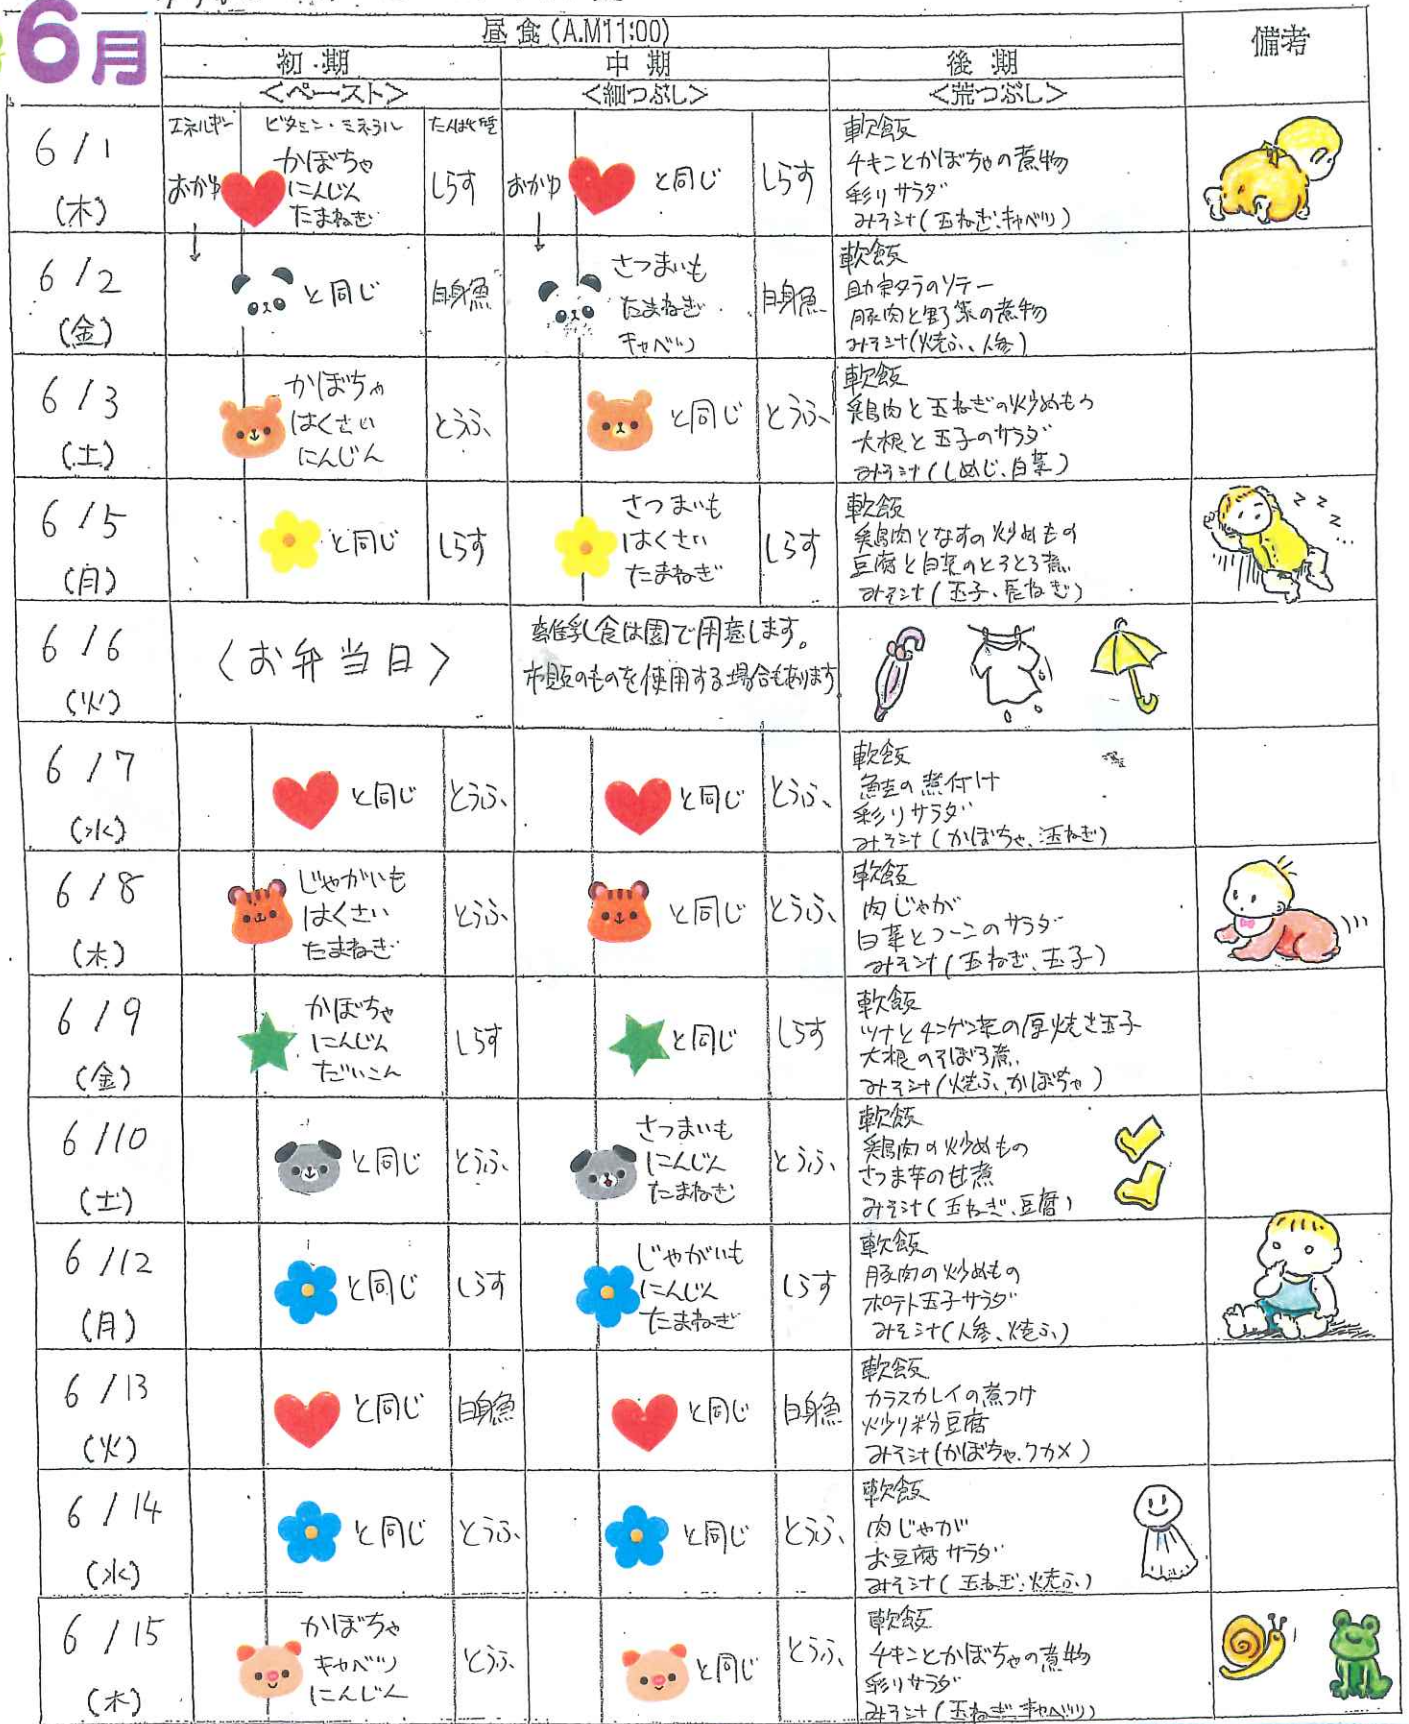 6月
昼食(A.M11:00)
備考
初期
中期
後期
<ペースト>
<細つぶし>
<荒つぶし>
6/1
(木)
エネルギー
ビタミン・ミネラル
たんぱく質
おかゆ
かぼちゃ
にんじん
たまねぎ
しらす
おかゆ
と同じ
しらす
軟飯
チキンとかぼちゃの煮物
彩りサラダ
みそ汁(玉ねぎ、キャベツ)
6/2
(金)
と同じ
白身魚
さつまいも
たまねぎ
キャベツ
白身魚
軟飯
助宗タラのソテー
豚肉と野菜の煮物
みそ汁(焼ふ、人参)
6/3
(土)
かぼちゃ
はくさい
にんじん
とうふ
と同じ
とうふ
軟飯
鶏肉と玉ねぎの炒めもの
大根と玉子のサラダ
みそ汁(しめじ、白菜)
6/5
(月)
と同じ
しらす
さつまいも
はくさい
たまねぎ
しらす
軟飯
鶏肉となすの炒めもの
豆腐と白菜のとろとろ煮
みそ汁(玉子、長ねぎ)
zzz
6/6
(火)
<お弁当日>
離乳食は園で用意します。
市販のものを使用する場合もあります
6/7
(水)
と同じ
とうふ
と同じ
とうふ
軟飯
鮭の煮付け
彩りサラダ
みそ汁(かぼちゃ、玉ねぎ)
6/8
(木)
じゃがいも
はくさい
たまねぎ
とうふ
と同じ
とうふ
軟飯
肉じゃが
白菜とコーンのサラダ
みそ汁(玉ねぎ、玉子)
6/9
(金)
かぼちゃ
にんじん
だいこん
しらす
と同じ
しらす
軟飯
ツナとチンゲン菜の厚焼き玉子
大根のそぼろ煮
みそ汁(焼ふ、かぼちゃ)
6/10
(土)
と同じ
とうふ
さつまいも
にんじん
たまねぎ
とうふ
軟飯
鶏肉の炒めもの
さつま芋の甘煮
みそ汁(玉ねぎ、豆腐)
6/12
(月)
と同じ
しらす
じゃがいも
にんじん
たまねぎ
しらす
軟飯
豚肉の炒めもの
ポテト玉子サラダ
みそ汁(人参、焼ふ)
6/13
(火)
と同じ
白身魚
と同じ
白身魚
軟飯
カラスカレイの煮つけ
炒り粉豆腐
みそ汁(かぼちゃ、ワカメ)
6/14
(水)
と同じ
とうふ
と同じ
とうふ
軟飯
肉じゃが
お豆腐サラダ
みそ汁(玉ねぎ、焼ふ)
6/15
(木)
かぼちゃ
キャベツ
にんじん
とうふ
と同じ
とうふ
軟飯
チキンとかぼちゃの煮物
彩りサラダ
みそ汁(玉ねぎ、キャベツ)